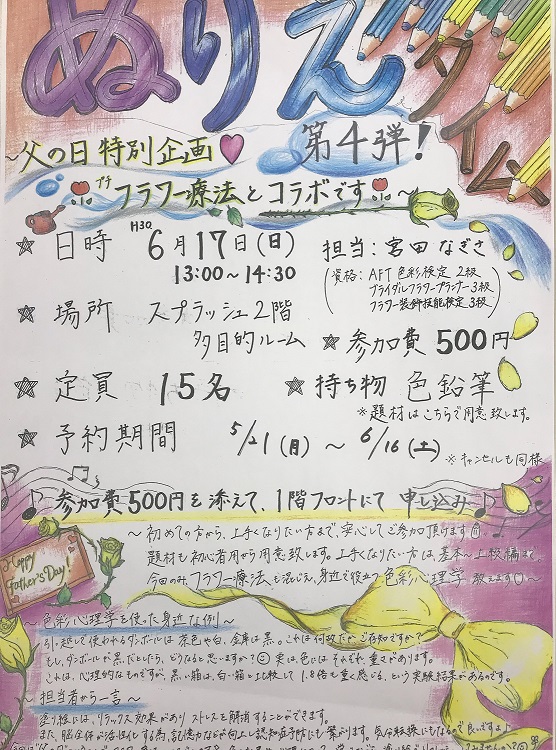 ぬりえタイム
~父の日特別企画♥ 第4弾!
プチフラワー療法とコラボです~
☆日時 H30 6月17日(日) 担当:宮田なぎさ
13:00~14:30
(資格:AFT色彩検定2級
ブライダルフラワープランナー3級
フラワー装飾技能検定3級)
☆場所 スプラッシュ2階
多目的ルーム
☆参加費500円
☆定員 15名 ☆持ち物 色鉛筆
※題材はこちらで用意致します。
☆予約期間 5/21(月)~6/16(土)
※キャンセルも同様
♪参加費500円を添えて、1階フロントにて申し込み♪
Happy
Father's Day
~初めての方から、上手くなりたい方まで、安心してご参加頂けます
題材も初心者用から用意致します。上手くなりたい方は、基本~上級編まで。
今回のみ、フラワー療法も混じえ、身近で役立つ色彩心理学教えます♡~
~色彩心理学を使った身近な例~
引っ越しで使われるダンボールは茶色や白、金庫は黒。これは何故だかご存知ですか?
もし、ダンボールが黒だとしたら、どうなると思いますか?実は、色にはそれぞれ重さがあります。
これは、心理的なものですが、黒い箱は、白い箱と比較して1.8倍も重く感じる、という実験結果があるのです。
~担当者から一言~
塗り絵には、リラックス効果がありストレスを解消することができます。
また、脳全体が活性化する為、記憶力などが向上し認知症予防にも繋がります。気分転換にもなるので良いですよ♪